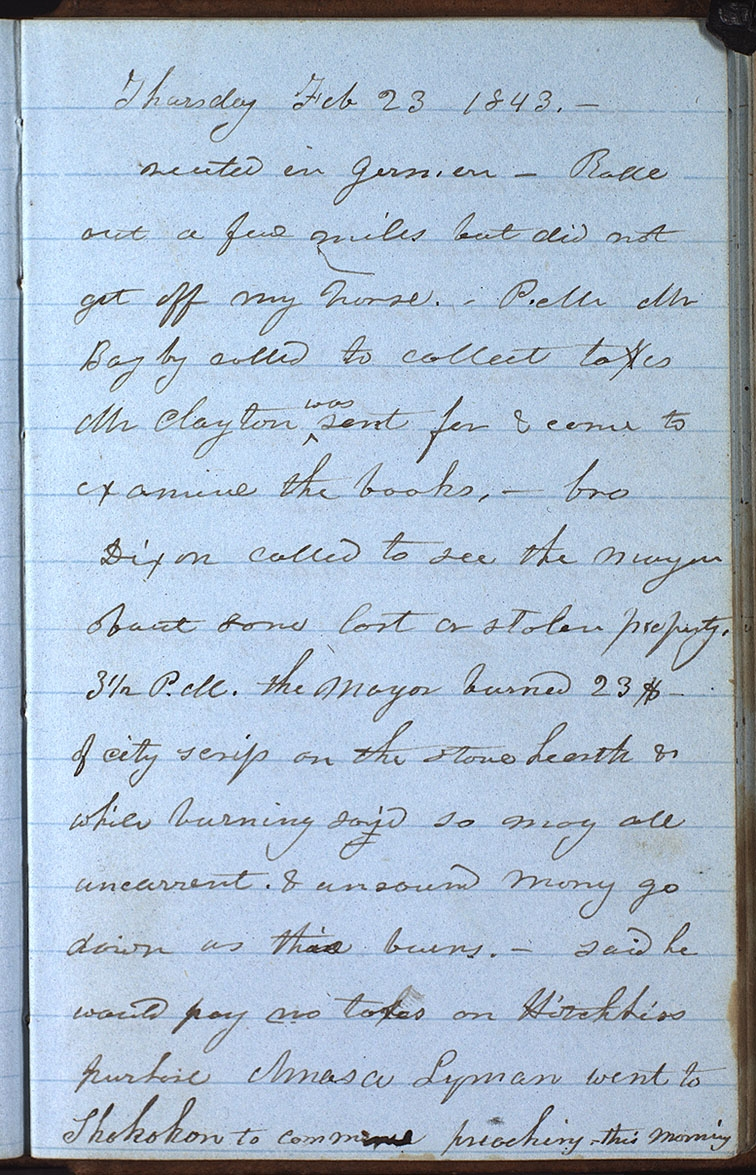 Thursday Feb 23 1843. —
recited in German — Rode
out a few miles but did not
get off my horse. - P.M. Mr
Bagby called to collect taxes
Mr Clayton was sent for & come to
examine the books, — bro
Dixon called to see the mayor
about some lost or stolen property.
3 1/2 P.M. the Mayor burned 23 $ —
of city scrip on the stove hearth &
while burning said so may all
uncurrent. & unsound mony go
down as this burns. — said he
would pay no taxes on Hotchkiss
purchise Amasa Lyman went to
Shokokon to commence preaching - this morning